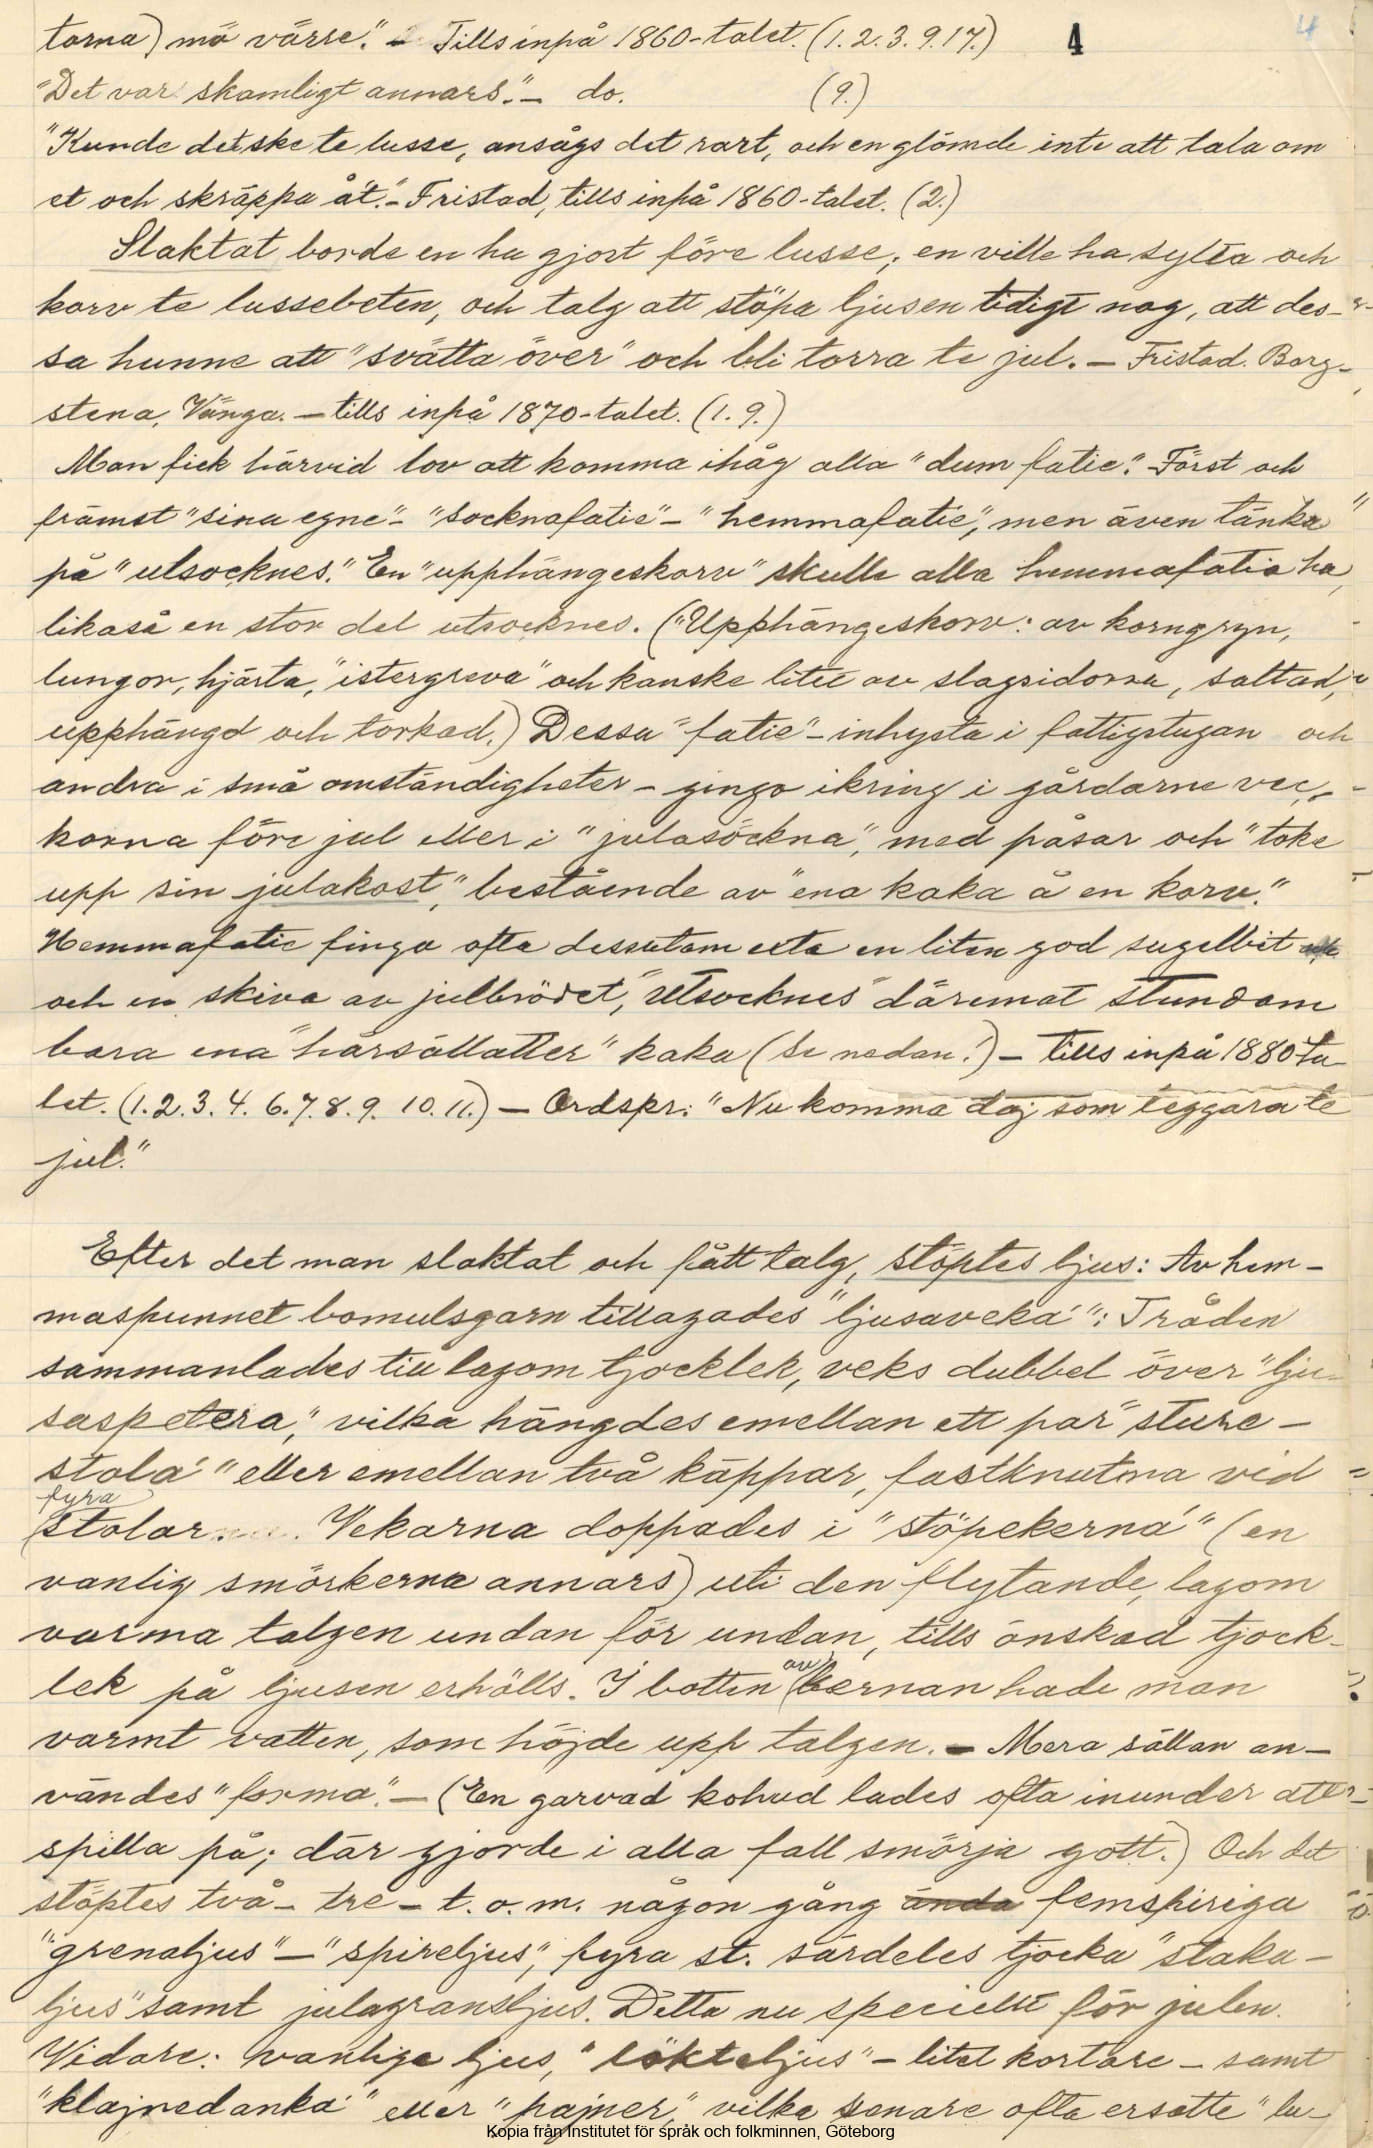 torna) mö värre." – Tills inpå 1860-talet. (1. 2. 3. 9. 17.) 4 4
"Det var skamligt annars." – do. (9.)
"Kunde det ske te lusse, ansågs det rart, och en glömde inte att tala om
et och skräppa å't." – Fristad, tills inpå 1860-talet. (2.)
Slaktat borde en ha gjort före lusse; en ville ha sylta och
korv te lussebeten, och talg att stöpa ljusen tidigt nog, att des-
sa hunne att "svätta över" och bli torra te jul. – Fristad. Borg-
stena, Vänga. – tills inpå 1870-talet. (1. 9.)
Man fick härvid lov att komma ihåg alla "dum fatie". Först och
främst "sina egne" – "socknafatie" – "hemmafatie", men även tänka
på "utsocknes." En "upphängeskorv" skulle alla hemmafatie ha,
likaså en stor del utsocknes. ("Upphängeskorv: av korngryn,
lungor, hjärta, "istergreva" och kanske litet av slagsidorna, saltad,
upphängd och torkad.) Dessa "fatie" – inhysta i fattigstugan och
andra i små omständigheter – gingo ikring i gårdarne vec-
korna före jul eller i "julasöckna", med påsar och "toke
upp sin julakost", bestående av "ena kaka å en korv."
Hemmafatie fingo ofta dessutom exta en liten god sugelbit
och en skiva av julbrödet, "utsocknes" däremot stundom
bara ena "hårsållatter" kaka (Se nedan!) – tills inpå 1880-ta-
let. (1. 2. 3. 4. 6. 7. 8. 9. 10. 11.) – Ordspr: "Nu komma daj som teggara te
jul."
Efter det man slaktat och fått talg, stöptes ljus: Av hem-
maspunnet bomulsgarn tillagades "ljusaveka'": Tråden
sammanlades till lagom tjocklek, veks dubbel över "lju-
saspetera", vilka hängdes emellan ett par "sture-
stola'" eller emellan två käppar, fastknutna vid
fyra
stolar. Vekarna doppades i "stöpekerna'" (en
vanlig smörkerna annars) uti den flytande, lagom
varma talgen undan för undan, tills önskad tjock-
lek på ljusen erhölls. I botten av kernan hade man
varmt vatten, som höjde upp talgen. – Mera sällan an-
vändes "forma". – (En garvad kohud lades ofta inunder att
spilla på; där gjorde i alla fall smörja gott.) Och det
stöptes två- tre- t. o. m. någon gång ända femspiriga
"grenaljus" – "spireljus", fyra st. särdeles tjocka "staka-
ljus" samt julagransljus. Detta nu speciellt för julen.
Vidare: vanliga ljus, "lökteljus" – litet kortare – samt
"klajnedanka'" eller "pajner", vilka senare ofta ersatte "lu-
Kopia från Institutet för språk och folkminnen, Göteborg